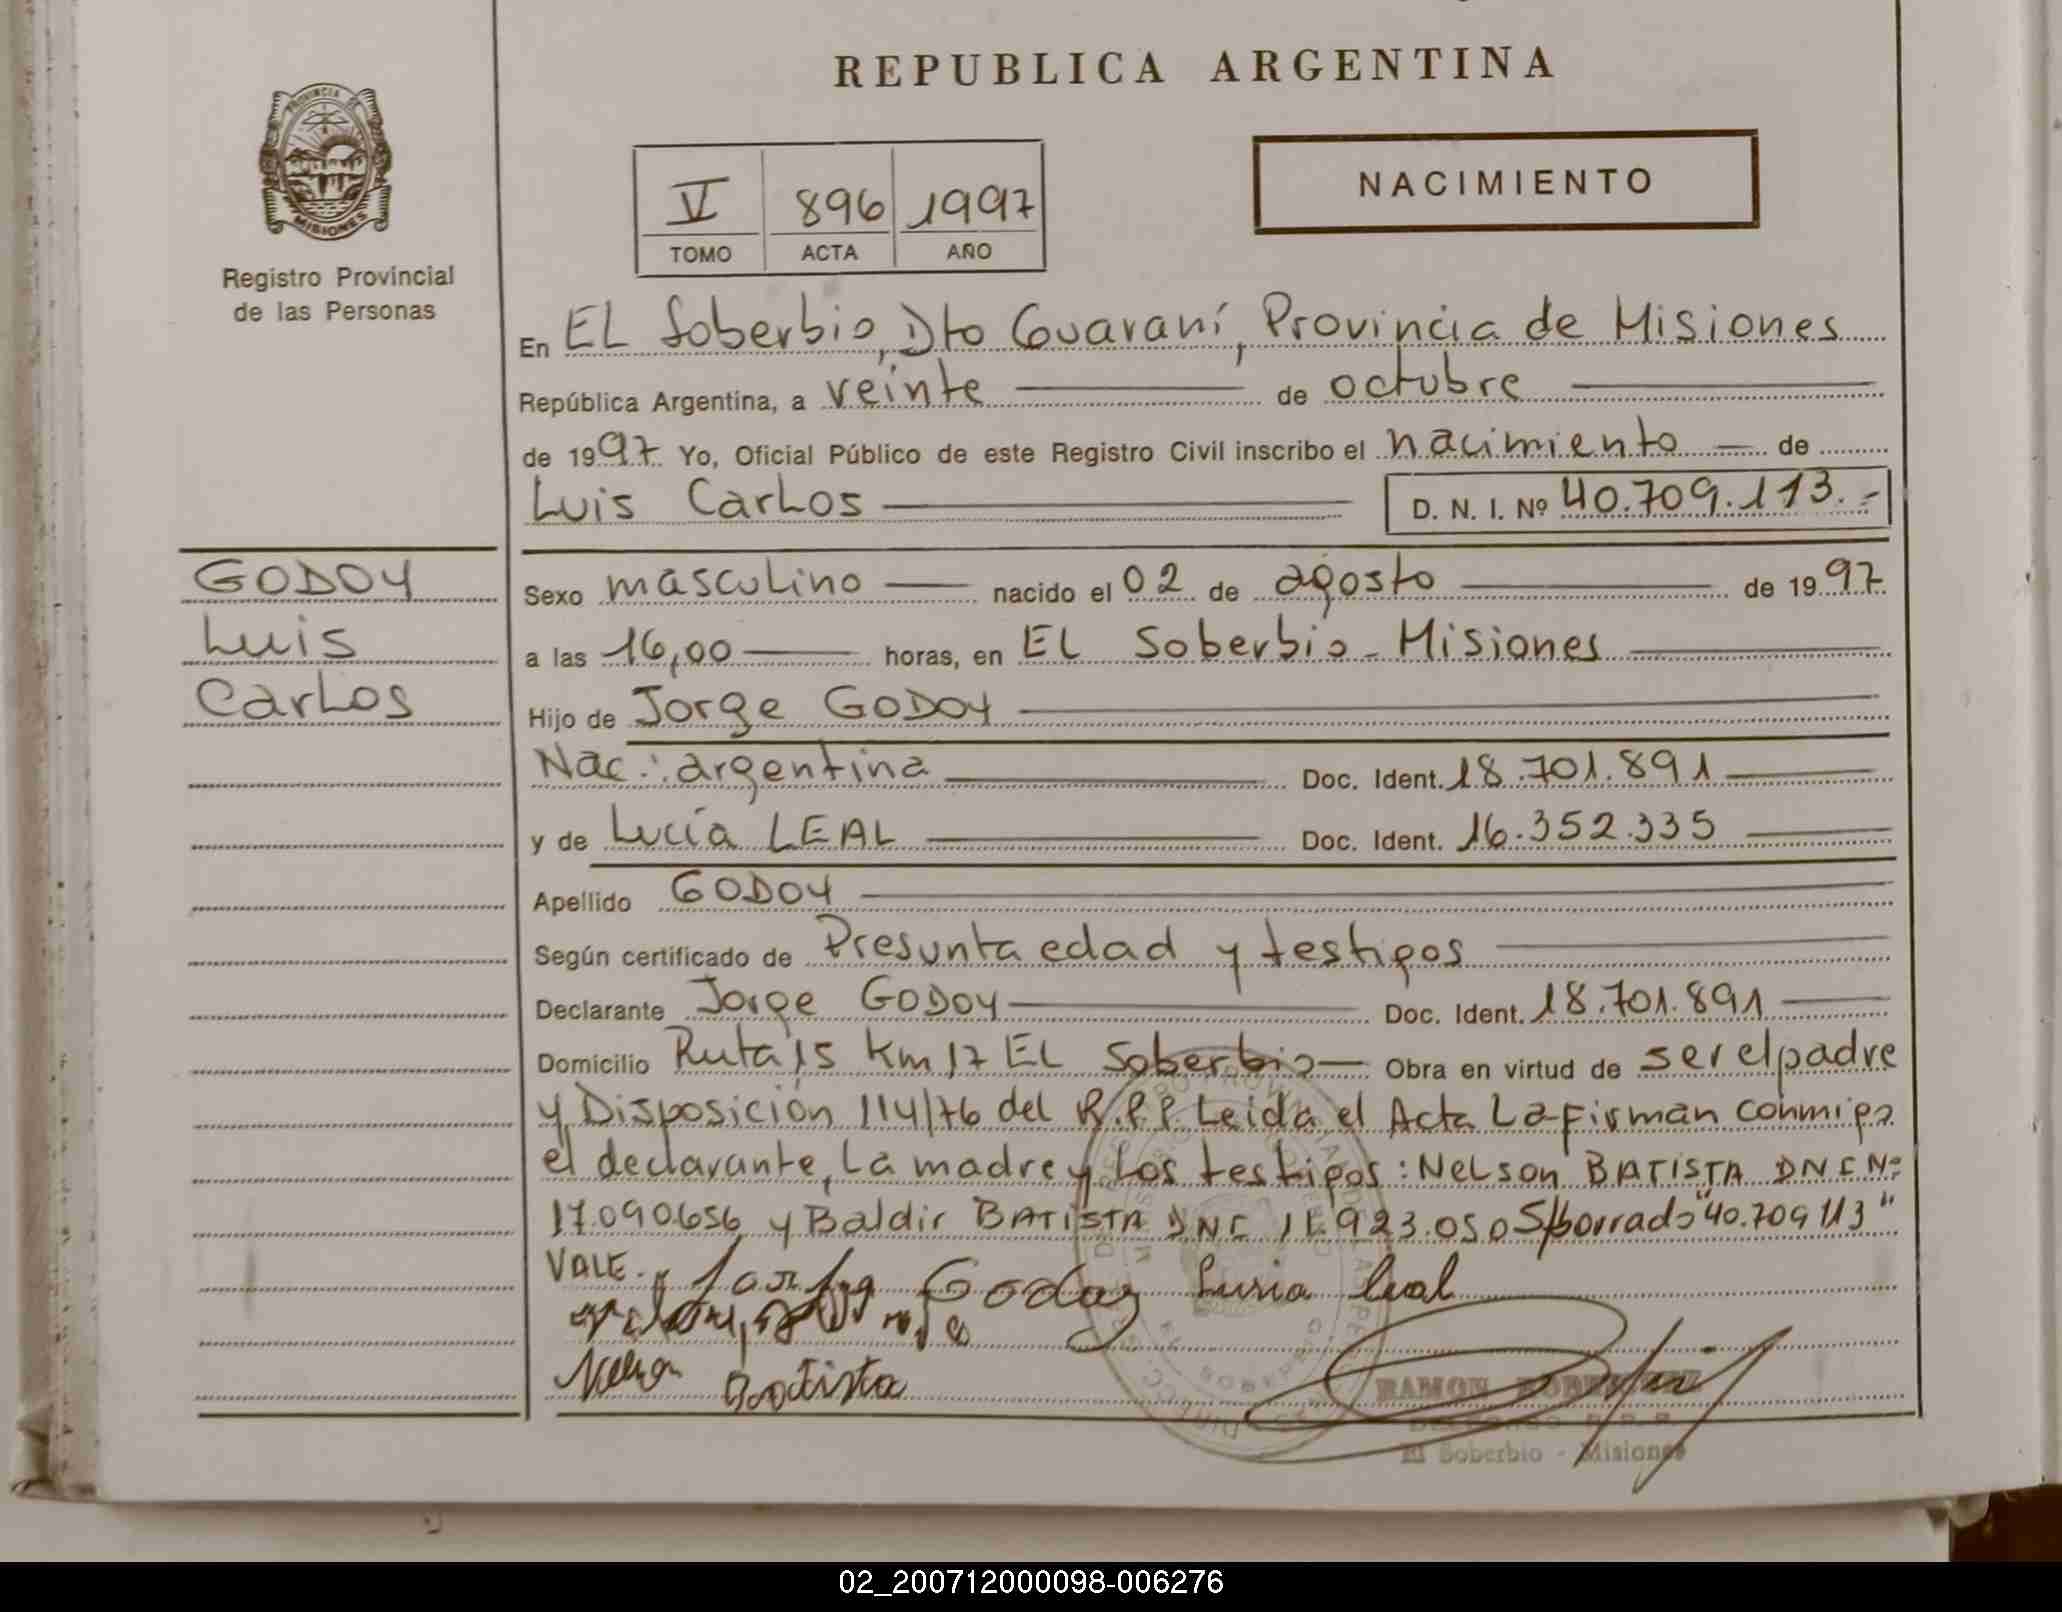 REPUBLICA ARGENTINA
PROVINCIA DE
MISIONES
Registro Provincial
de las Personas
V 896 1997
TOMO ACTA AÑO
NACIMIENTO
En EL Soberbio, Dto Guaraní, Provincia de Misiones
República Argentina, a veinte de octubre
de 1997 Yo, Oficial Público de este Registro Civil inscribo el nacimiento de
Luis Carlos D. N. I. Nº 40.709.113.-
GODOY
Luis
Carlos
Sexo masculino nacido el 02 de agosto de 1997
a las 16,00 horas, en EL Soberbio - Misiones
Hijo de Jorge GODOY
Nac.: argentina Doc. Ident. 18.701.891
y de Lucía LEAL Doc. Ident. 16.352.335
Apellido GODOY
Según certificado de Presunta edad y testigos
Declarante Jorge GODOY Doc. Ident. 18.701.891
Domicilio Ruta 15 Km 17 EL Soberbio Obra en virtud de ser el padre
y Disposición 114/76 del R.P.P. Leida el Acta La firman conmigo
el declarante, la madre y los testigos: Nelson BATISTA DNI Nº
17.090.656 y Baldir BATISTA DNI 11.923.050 S/borrado "40.709 113"
VALE.
Godoy Lusia Leal
Nelson Batista
RAMON
El Soberbio - Misiones
02_200712000098-006276